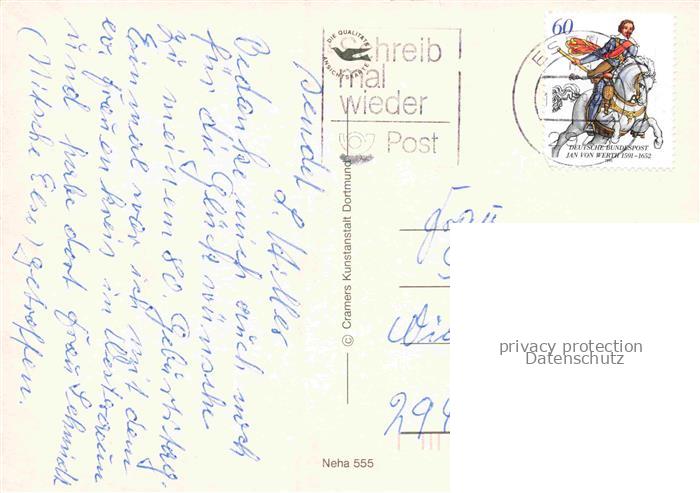 L. Hilles
Bedanke mich auch noch
für die Glückwünsche
zu meinem 80. Geburtstag.
Einmal war ich mit dem
ev Frauenkreis in
und habe dort Frau Schmidt
(Nitsche Else) getroffen.
DIE QUALITÄTS
ANSICHTSKARTE
Schreib
mal
wieder
Post
60
DEUTSCHE BUNDESPOST
JAN VON WERTH 1591-1652
© Cramers Kunstanstalt Dortmund
Frau
294
privacy protection
Datenschutz
Neha 555